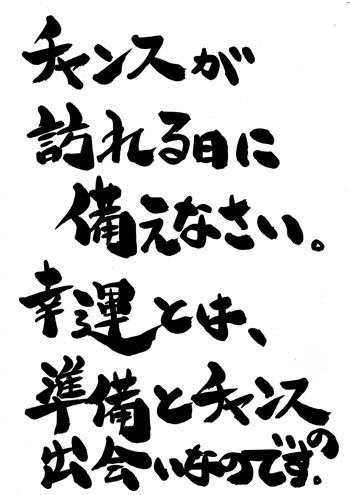 チャンスが
訪れる日に
備えなさい。
幸運とは、
準備とチャンスの
出会いなのです。